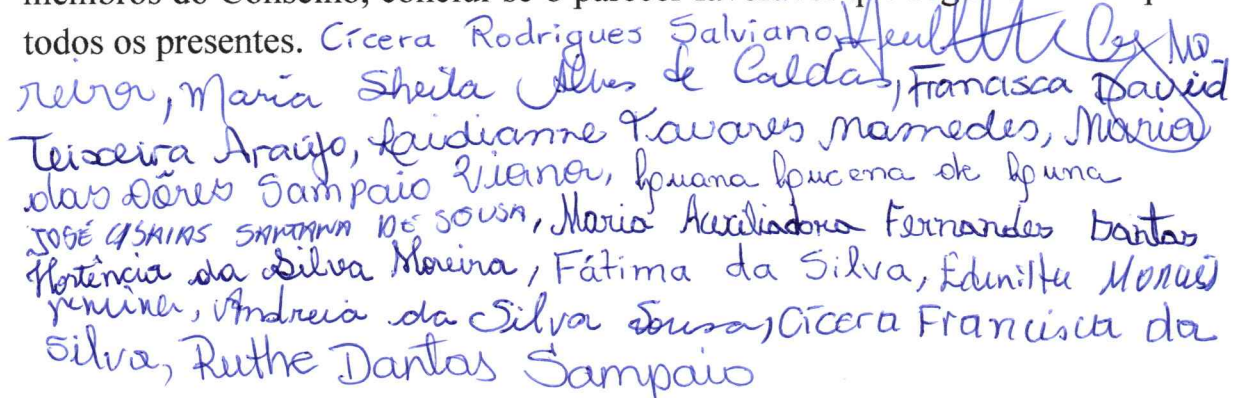 todos os presentes. Cícera Rodrigues Salviano,
reira, Maria Sheila Alves de Caldas, Francisca David
Teixeira Araújo, Laidianne Tavares Mamedes, Maria
das Dôres Sampaio Viana, Luana Lucena de Luna
JOSÉ SANTANA DE SOUSA, Maria Auxiliadora Fernandes Dantas
Hortência da Silva Moreira, Fátima da Silva,
Andreia da Silva Sousa, Cícera Francisca da
Silva, Ruthe Dantas Sampaio